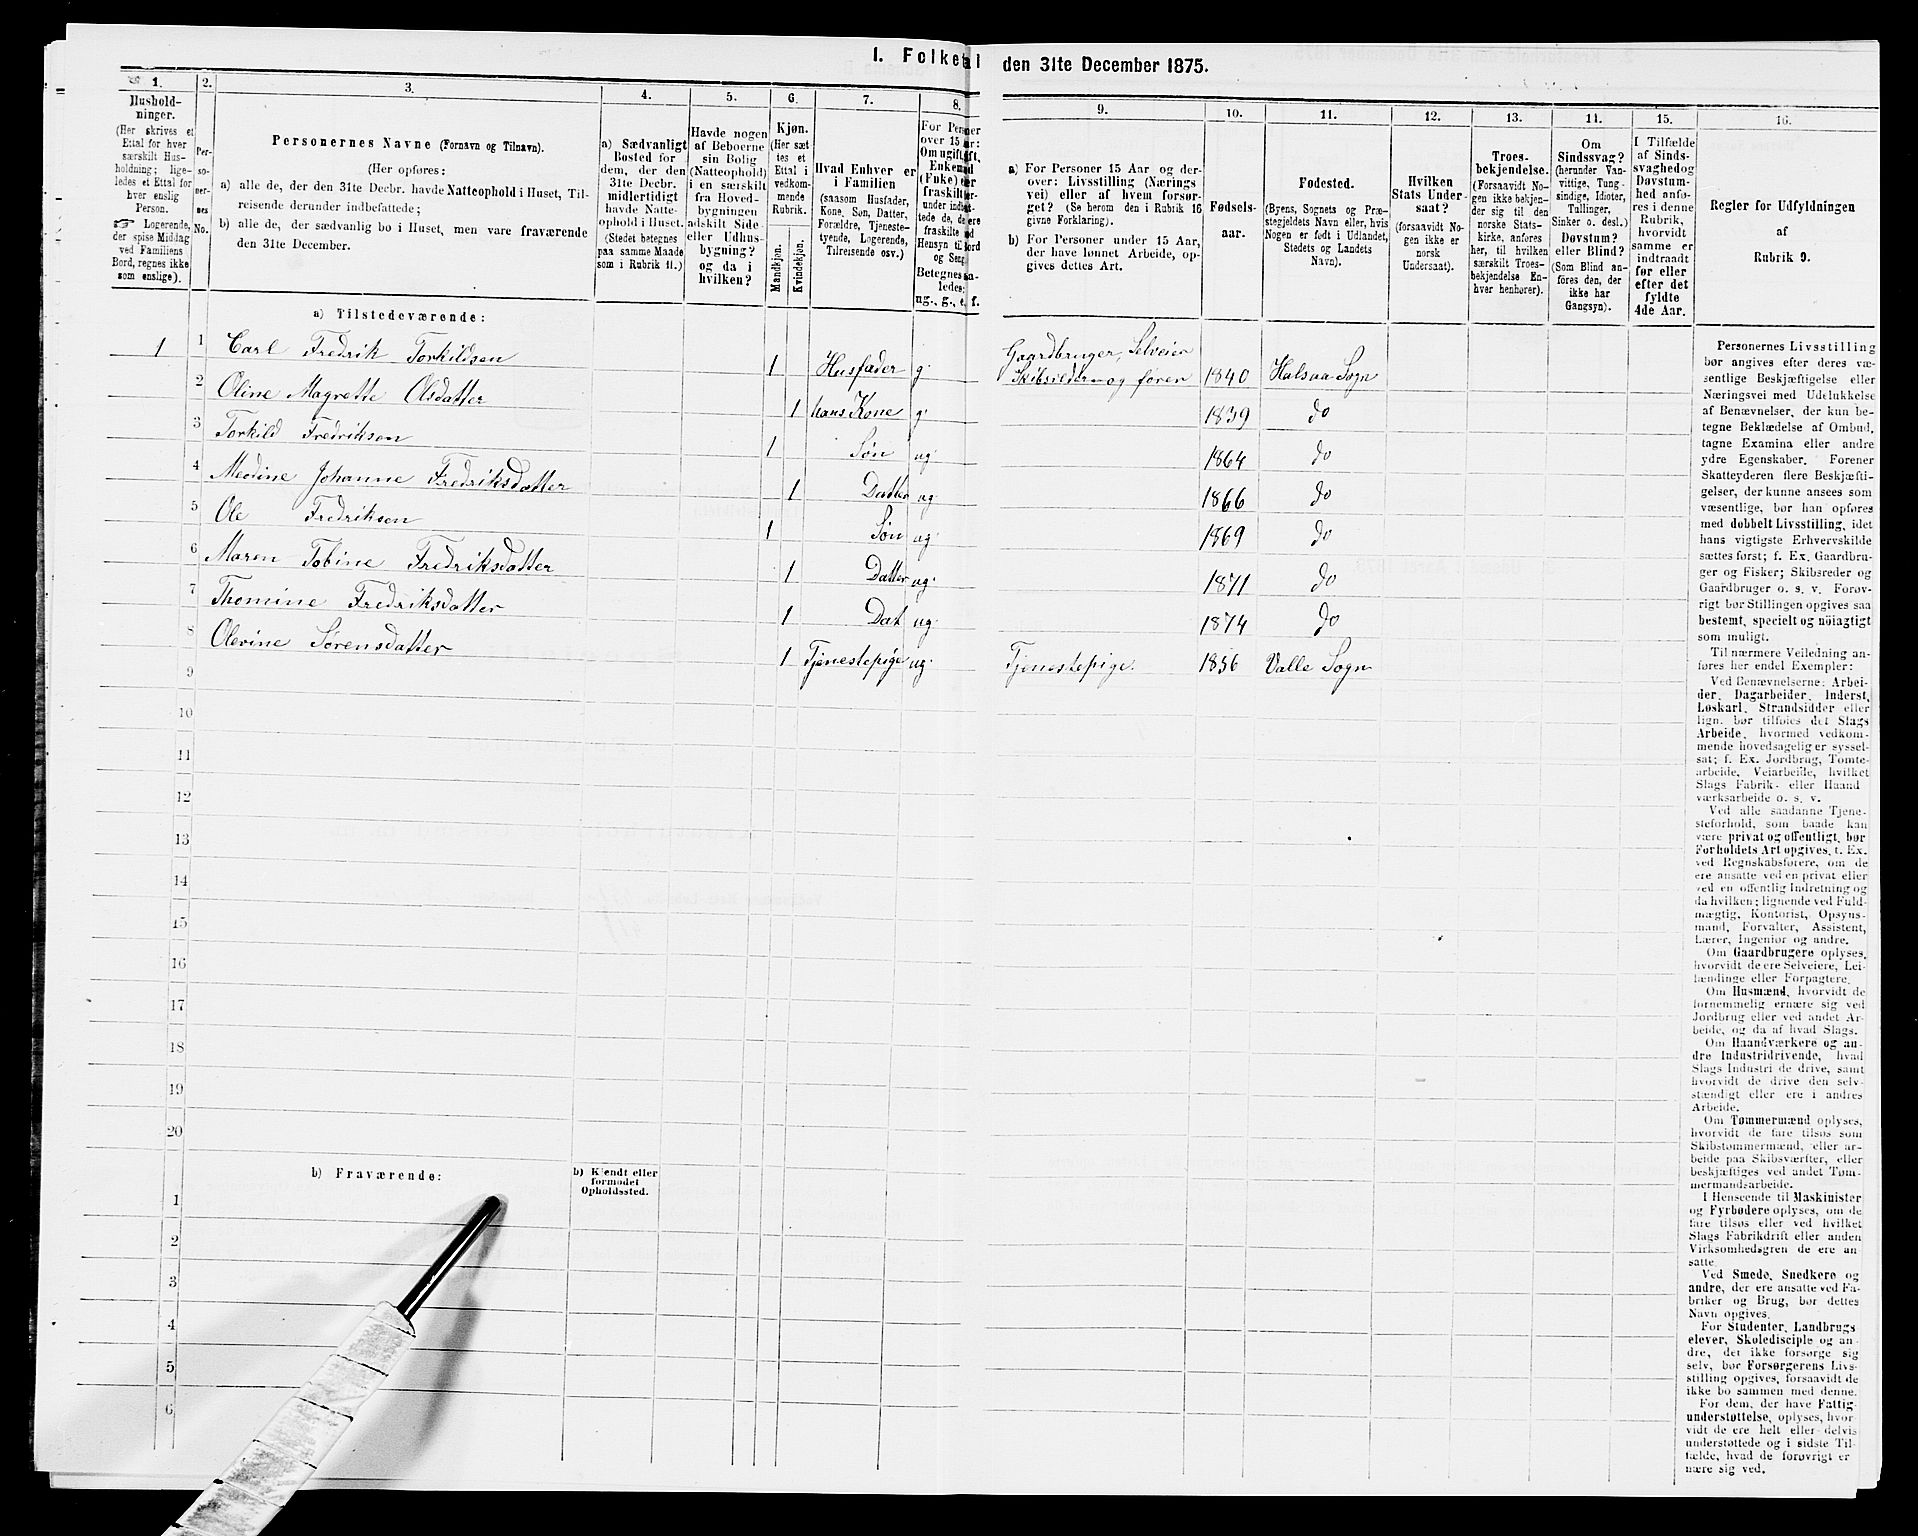 I. Folketal den 31te December 1875.
1. 2. 3. 4. 5. 6. 7. 8. 9. 10. 11. 12. 13. 14. 15. 16.
Hushold-
ninger.
(Her skrives et
Ettal for hver
særskilt Hus-
holdning; lige-
ledes et Ettal for
hver enslig
Person.
☞ Logerende,
der spise Middag
ved Familiens
Bord, regnes ikke
som enslige).
Per-
so-
ner-
nes
No.
Personernes Navne (Fornavn og Tilnavn).
(Her opføres:
a) alle de, der den 31te Decbr. havde Natteophold i Huset, Til-
reisende derunder indbefattede;
b) alle de, der sædvanlig bo i Huset, men vare fraværende
den 31te December.
a) Sædvanligt
Bosted for
dem, der den
31te Decbr.
midlertidigt
havde Natte-
ophold i Huset.
(Stedet betegnes
paa samme Maade
som i Rubrik 11.)
Havde nogen
af Beboerne
sin Bolig
(Natteophold)
i en særskilt
fra Hoved-
bygningen
adskilt Side-
eller Udhus-
bygning?
og da i
hvilken?
Kjøn.
(Her sæt
tes et
Ettal i
vedkom-
mende
Rubrik.
Mandkjøn.
Kvindekjøn.
Hvad Enhver er
i Familien
(saasom Husfader,
Kone, Søn, Datter,
Forældre, Tjeneste-
tyende, Logerende,
Tilreisende osv.)
For Personer
over 15 Aar:
Om ugift, gift,
Enkemand
(Enke) eller
fraskilt
Betegnes saa-
ledes:
ug., g., e. f.
a) For Personer 15 Aar og der-
over: Livsstilling (Nærings
vei) eller af hvem forsør-
get? (Se herom den i Rubrik 16
givne Forklaring).
b) For Personer under 15 Aar,
der have lønnet Arbeide, op-
gives dettes Art.
Fødsels-
aar.
Fødested.
(Byens, Sognets og Præ-
stegjeldets Navn eller, hvis
Nogen er født i Udlandet,
Stedets og Landets
Navn).
Hvilken
Stats Under-
saat?
(forsaavidt No-
gen ikke er
norsk
Undersaat).
Troes-
bekjendelse.
(Forsaavidt No-
gen ikke bekjen-
der sig til den
norske Stats-
kirke, anføres
her, til hvilken
særskilt Troes-
bekjendelse En-
hver henhører).
Om
Sindssvag?
(herunder Van-
vittige, Tung-
sindige, Idioter,
Tullinger,
Sinker o. desl.)
Døvstum?
eller Blind?
(Som Blind an-
føres den, der
ikke har
Gangsyn).
I Tilfælde
af Sinds-
svaghed og
Døvstum-
hed anfø-
res i denne
Rubrik,
hvorvidt
samme er
indtraadt
før eller
efter det
fyldte
4de Aar.
Regler for Udfyldningen
af
Rubrik 9.
a) Tilstedeværende:
1 1 Carl Fredrik Torkildsen 1 Husfader g. Gaardbruger, Selveier Skibsreder og fører 1840 Halsaa Sogn
2 Oline Magrette Olsdatter 1 hans Kone g. 1839 do
3 Torkild Fredriksen 1 Søn ug. 1864 do
4 Medine Johanne Fredriksdatter 1 Datter ug. 1866 do
5 Ole Fredriksen 1 Søn ug. 1869 do
6 Maren Tobine Fredriksdatter 1 Datter ug. 1871 do
7 Thomine Fredriksdatter 1 Dat ug. 1874 do
8 Olevine Sørensdatter 1 Tjenestepige ug. Tjenestepige. 1856 Valle Sogn
9
10
11
12
13
14
15
16
17
18
19
20
b) Fraværende:
b) Kjendt eller
formodet
Opholdssted.
1
2
3
4
5
6
Personernes Livsstilling
bør angives efter deres væ-
sentlige Beskjæftigelse eller
Næringsvei med Udelukkelse
af Benævnelser, der kun be-
tegne Beklædelse af Ombud,
tagne Examina eller andre
ydre Egenskaber. Forener
Skatteyderen flere Beskjæfti-
gelser, der kunne ansees som
væsentlige, bør han opføres
med dobbelt Livsstilling, idet
hans vigtigste Erhvervskilde
sættes først; f. Ex. Gaardbru-
ger og Fisker; Skibsreder og
Gaardbruger o. s. v. Forøv-
rigt bør Stillingen opgives saa
bestemt, specielt og nöiagtigt
som muligt.
Til nærmere Veiledning an-
føres her endel Exempler:
Ved Benævnelserne: Arbei-
der, Dagarbeider, Inderst,
Løskarl, Strandsidder eller
lign. bør tilføies det Slags
Arbeide, hvormed vedkom-
mende hovedsagelig er syssel-
sat; f. Ex. Jordbrug, Tomte-
arbeide, Veiarbeide, hvilket
Slags Fabrik- eller Haand
værksarbeide o. s. v.
Ved alle saadanne Tjene-
steforhold, som baade kan
være privat og offentligt, bør
Forholdets Art opgives, f. Ex.
ved Regnskabsførere, om de
ere ansatte ved en privat eller
ved en offentlig Indretning og
da hvilken; lignende ved Fuld-
mægtig, Kontorist, Opsyns-
mand, Forvalter, Assistent,
Lærer, Ingeniør og andre.
Om Gaardbrugere oplyses,
hvorvidt de ere Selveiere, Lei-
lændinge eller Forpagtere.
Om Husmænd, hvorvidt de
fornemmelig ernære sig ved
Jordbrug eller ved andet Ar-
beide, og da af hvad Slags.
Om Haandværkere og an-
dre Industridrivende, hvad
Slags Industri de drive, samt
hvorvidt de drive den selv-
stændigt eller ere i andres
Arbeide.
Om Tømmermænd oplyses,
hvorvidt de fare tilsøs som
Skibstømmermænd, eller ar-
beide paa Skibsværfter, eller
beskjæftiges ved andet Tøm-
mermandsarbeide.
I Henseende til Maskinister
og Fyrbødere oplyses, om de
fare tilsøs eller ved hvilket
Slags Fabrikdrift eller anden
Virksomhedsgren de ere an-
satte.
Ved Smede, Snedkere og
andre, der ere ansatte ved Fa-
briker og Brug, bør dettes
Navn opgives.
For Studenter, Landbrugs
elever, Skoledisciple og an-
dre, der ikke forsørge sig
selv, bør Forsørgerens Livs-
stilling opgives, forsaavidt de
ikke bo sammen med denne.
For dem, der have Fattig
understøttelse, oplyses, hvor
vidt de ere helt eller delvis
understøttede og i sidste Til-
fælde, hvad de forøvrigt er
nære sig ved.